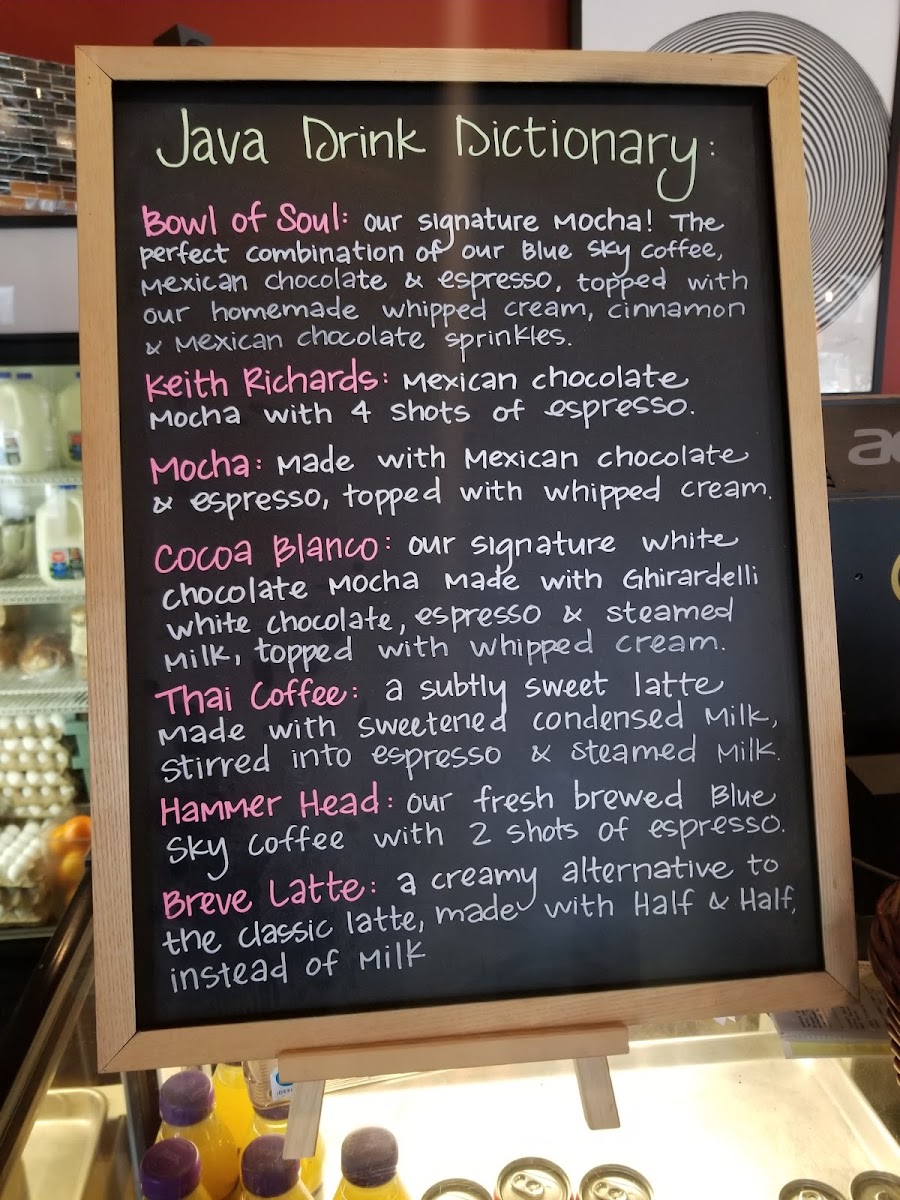 Java Drink Dictionary:
Bowl of Soul: our signature Mocha! The
perfect combination of our Blue Sky coffee,
Mexican chocolate & espresso, topped with
our homemade whipped cream, cinnamon
& Mexican chocolate sprinkles.
Keith Richards: Mexican chocolate
Mocha with 4 shots of espresso.
Mocha: Made with Mexican chocolate
& espresso, topped with whipped cream.
Cocoa Blanco: our signature white
chocolate Mocha Made with Ghirardelli
white chocolate, espresso & steamed
Milk, topped with whipped cream.
Thai Coffee: a subtly sweet latte
Made with sweetened condensed Milk,
stirred into espresso & steamed Milk.
Hammer Head: our fresh brewed Blue
Sky Coffee with 2 shots of espresso.
Breve Latte: a creamy alternative to
the classic latte, made with Half & Half,
instead of Milk